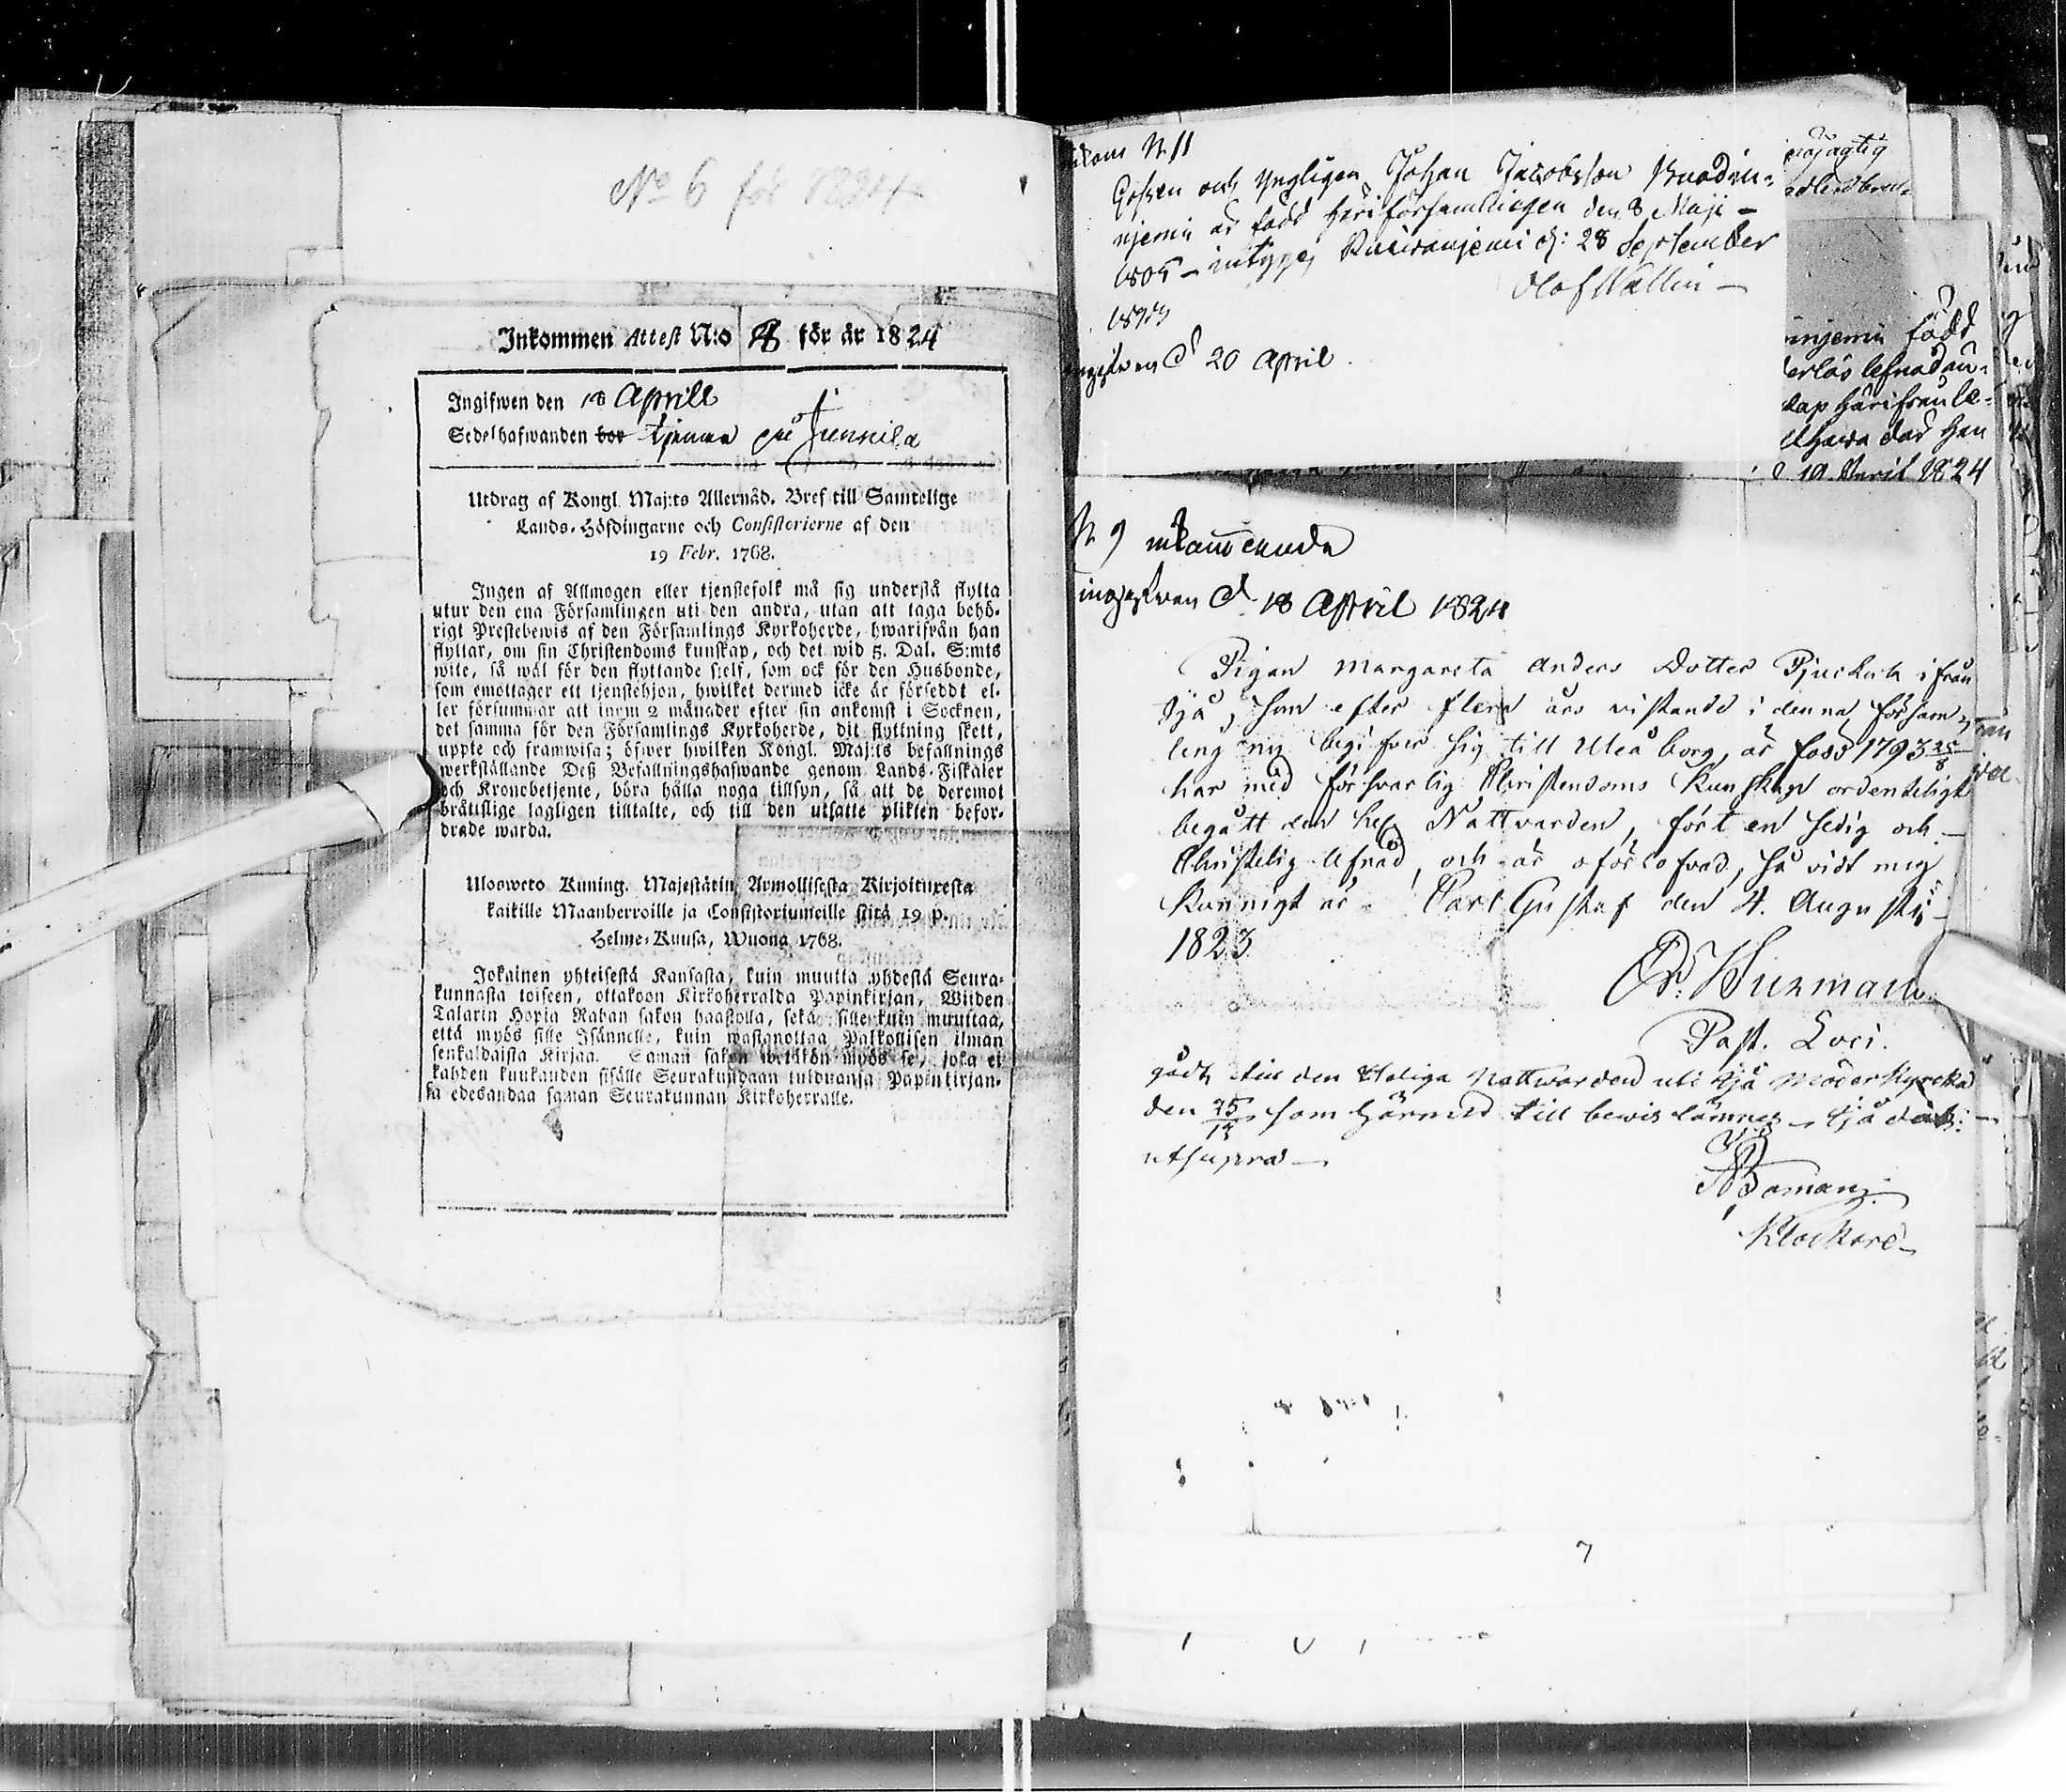 No 6 för 1824
Inkommen Attest N:o 8 för år 1824
Ingifwen den 18 Aprill
Sedelhafwanden bor tjenar på Junnila
Utdrag af Kongl. Maj:ts Allernåd. Bref till Samtelige
Lands-Höfdingarne och Consistorierne af den
19 Febr. 1768.
Ingen af Allmogen eller tjenstefolk må sig understå flytta
utur den ena Församlingen uti den andra, utan att taga behö-
rigt Prestebewis af den Församlings Kyrkoherde, hwarifrån han
flyttar, om sin Christendoms kunskap, och det wid 5. Dal. S:mts
wite, så wäl för den flyttande sjelf, som ock för den Husbonde,
som emottager ett tjenstehjon, hwilket dermed icke är försedt el-
ler försummar att inom 2 månader efter sin ankomst i Socknen,
det samma för den Församlings Kyrkoherde, dit flyttning skett,
uppte och framwisa; öfwer hwilken Kongl. Maj:ts befallnings
werkställande Deß Befallningshafwande genom Lands-Fiskaler
och Kronobetjente, böra hålla noga tillsyn, så att de deremot
bråttslige lagligen tilltalte, och till den utsatte plikten befor-
drade warda.
Ulosweto Kuning. Majestätin Armollisesta Kirjoituxesta
kaikille Maanherroille ja Consistoriumeille siitä 19 p.
Helme-Kuusa, Wuona 1768.
Jokainen yhteisestä Kansasta, kuin muutta yhdestä Seura-
kunnasta toiseen, ottakoon Kirkoherralda Papinkirjan, Wiiden
Talarin Hopia Rahan sakon haastolla, sekä sille kuin muuttaa,
että myös sille Isännelle, kuin wastanottaa Palkollisen ilman
senkaldaista Kirjaa. Saman sakon wetäkön myös se, joka ei
kahden kuukauden sisälle Seurakundaan tulduansa Papinkirjan-
sa edesandaa saman Seurakunnan Kirkoherralle.
N 11
Gossen och Ynglingen Johan Jacobsson
njemi är född häri församlingen den 8 Maji
1805 – intygas d: 28 September
Olof Wallin
d 20 April
född
19 April 1824
N 9 inkommende
ingifwen d 18 April 1824
Pigan Margareta Anders Dotter ifrån
Ijå, som efter flera års vistande i denna försam-
ling nu begifver sig till Uleåborg, är född 1793 25/8
har med försvarlig Christendoms Kunskap ordenteligt
begått den hel. Nattvarden, fört en sedig och
Christelig lefnad, och är oförlofvad, så vidt mig
kunnigt är. Carl Gustaf den 4. Augusti
1823
Past. Loci.
gådt till den Heliga Nattwarden uti Ijå Moderkyrcka
den som härmed till bewis lämnas – Ijå
utsupra –
Klockare